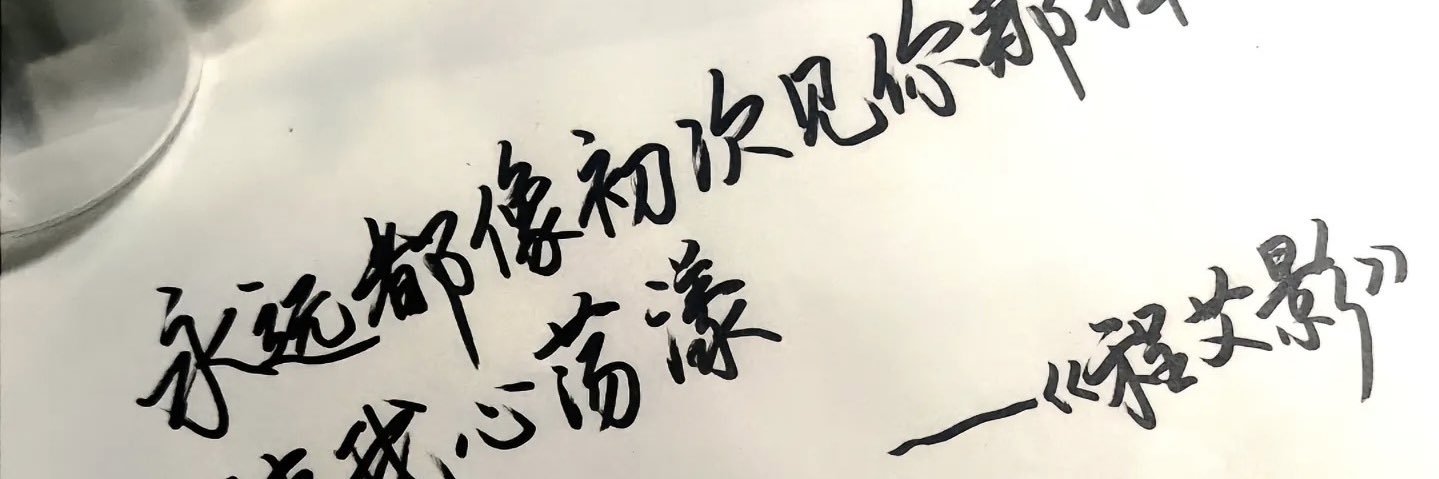 永远都像初次见你那
我心荡漾
——《程艾影》